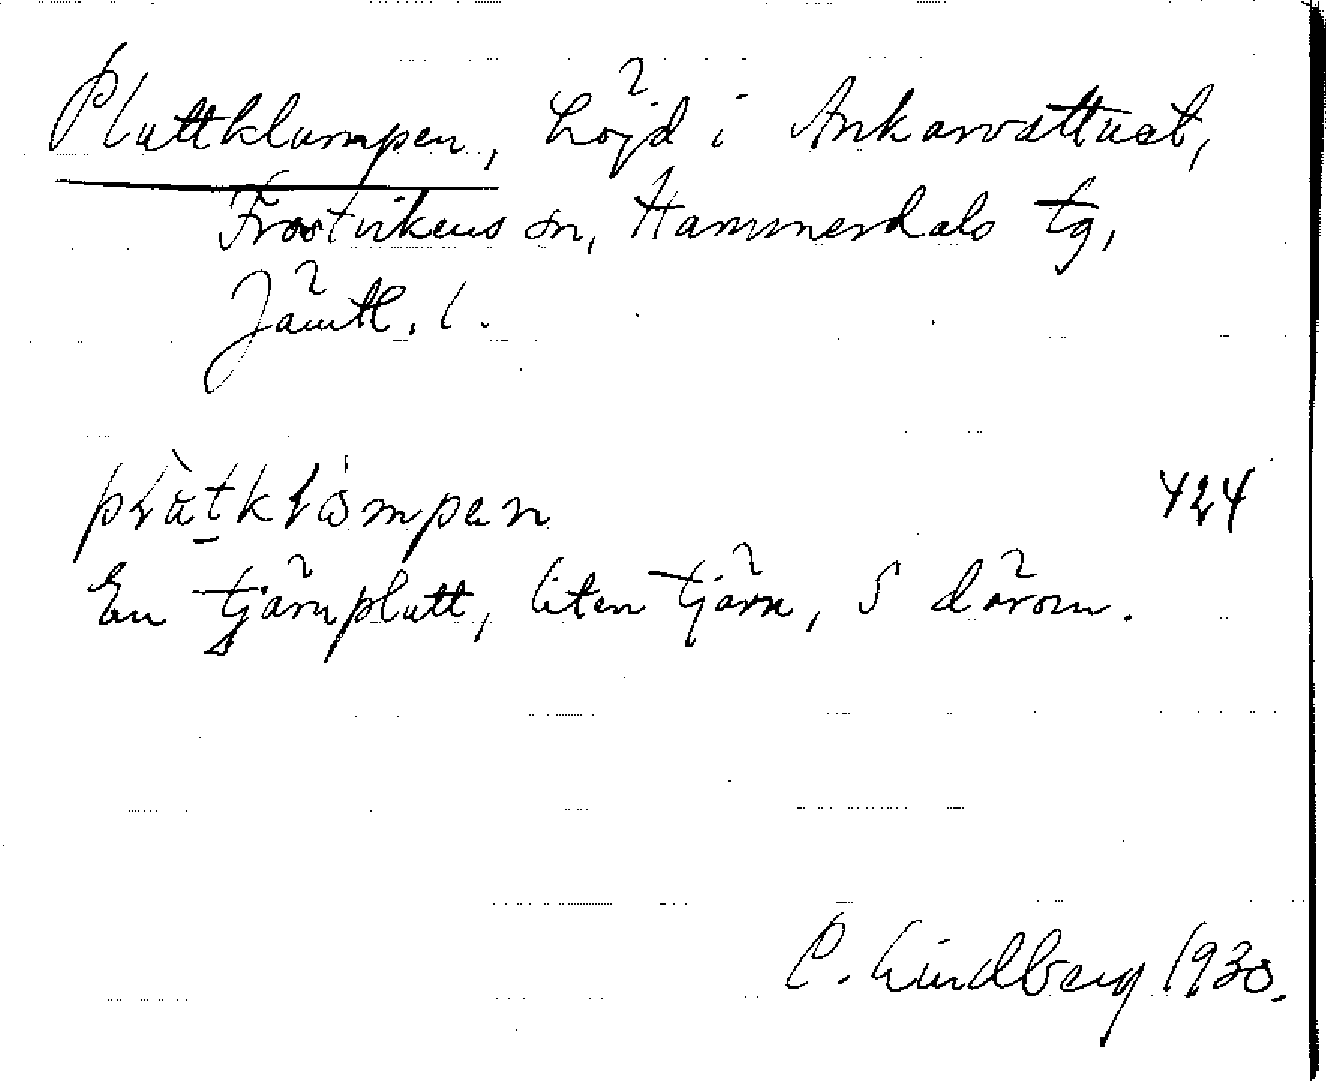 Plattklumpen, höjd i Ankarvattnet,
Frostvikens sn, Hammerdals tg,
Jämtl. l.
plàtklòmpen 424
En tjärnplatt, liten tjärn, S därom.
C. Lindberg 1930.